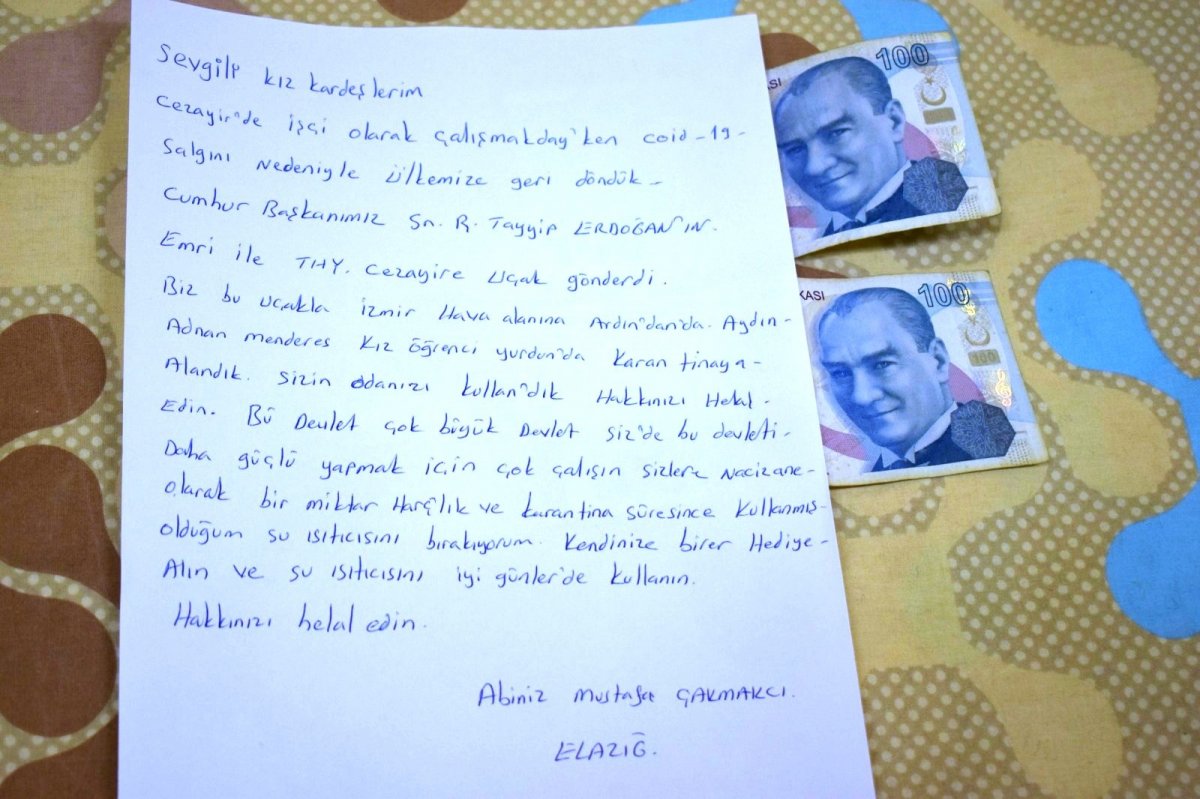 Sevgili kız kardeşlerim
Cezayir'de işçi olarak çalışmakday'ken coid-19-
Salgını Nedeniyle ülkemize geri döndük-
Cumhur Başkanımız Sn. R. Tayyip ERDOĞAN'IN.
Emri ile THY. Cezayire Uçak gönderdi.
Biz bu ucakla izmir Hava alanına Ardın'dan'da. Aydın-
Adnan menderes Kız öğrenci yurdun'da Karan tinaya-
Alandık. Sizin odanızı kullan'dık Hakkınızı Helal-
Edin. Bü Devlet çok büyük Devlet siz'de bu devleti-
Daha güçlü yapmak için çok çalışın sizlere Nacizane-
olarak bir miktar Harçlık ve karantina süresince kullanmış-
olduğum su ısıtıcısını bırakıyorum. Kendinize birer Hediye-
Alın ve su ısıtıcısını iyi günler'de kullanın.
Hakkınızı helal edin.
Abiniz Mustafa ÇAKMAKCI.
ELAZIĞ.
100
KASI
100
100